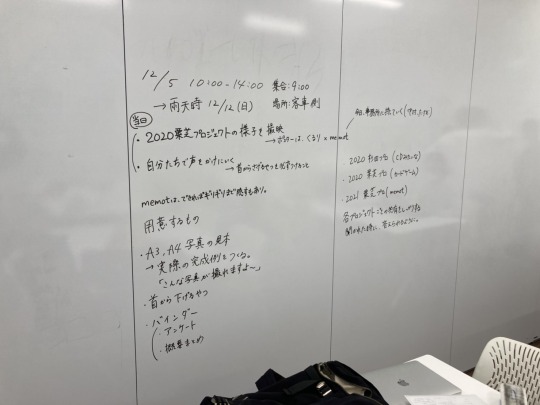 12/5 10:00-14:00 集合:9:00
→雨天時 12/12(日) 場所:客車側
当日
・2020栗芝プロジェクトの様子を撮映
→ポスターは、くるり×memot
・自分たちで声をかけにいく
→首からさげるやつを必ずつけること
memotは、できればギリギリまで残すもあり。
用意するもの
・A3, A4 写真の見本
→実際の完成例をつくる。
「こんな写真が撮れますよ〜」
・首から下げるやつ
・バインダー
・アンケート
・概要まとめ
2020 杉田プロ
・2020 栗芝プロ (カードゲーム)
・2021 栗芝プロ (memot)
各プロジェクトごとの
聞かれた時に、答えられるように。